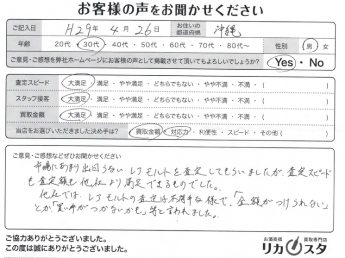 お客様の声をお聞かせください
ご記入日 H29年 4月 26日 お住いの都道府県 沖縄
年齢 20代・30代・40代・50代・60代・70代・80代〜 性別 男・女
ご意見・ご感想を弊社ホームページにお客様の声として掲載させて頂いてもよろしいでしょうか? Yes・No
査定スピード 大満足・満足・やや満足・どちらでもない・やや不満・不満・( )
スタッフ接客 大満足・満足・やや満足・どちらでもない・やや不満・不満・( )
買取金額 大満足・満足・やや満足・どちらでもない・やや不満・不満・( )
当店をお選びいただきました決め手は? 買取金額・対応力・利便性・スピード・その他( )
ご意見・ご感想などぜひお聞かせください
沖縄にあまり出回らないレアモルトを査定してもらいましたが、査定スピード
も査定額も他社より満足できるものでした。
他社では、レアモルトの査定は不得手な様で、「金額がつけられない」
とか「買い手がつかないかも」等と言われました。
ご協力ありがとうございました。
この度は誠にありがとうございました。
お酒高価買取専門店
リカスタ